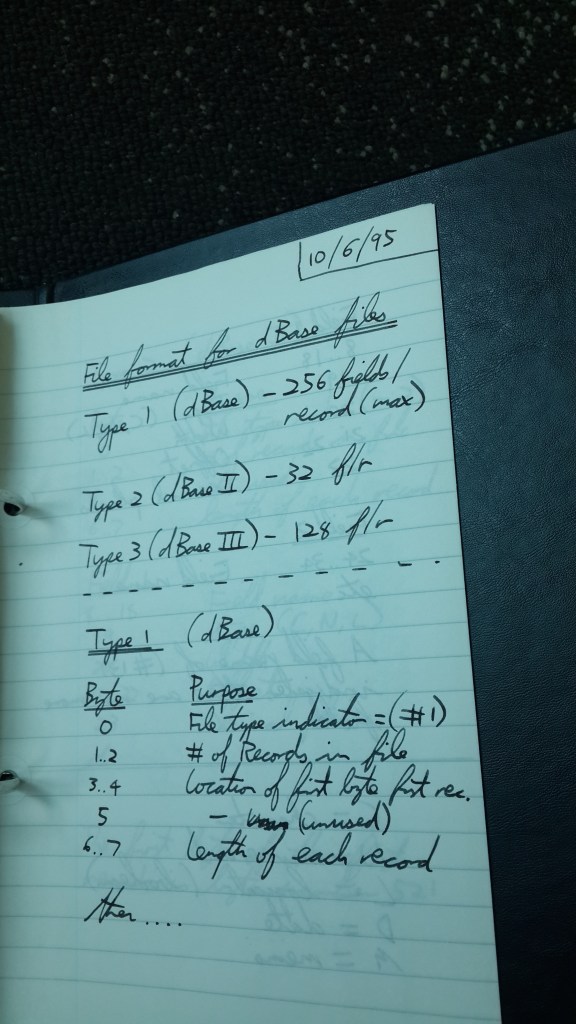 10/6/95
File format for dBase files
Type 1 (dBase) - 256 fields/
record (max)
Type 2 (dBase II) - 32 f/r
Type 3 (dBase III) - 128 f/r
- - - - - - - - - - - -
Type 1 (dBase)
Byte Purpose
0 File type indicator = (#1)
1..2 # of Records in file
3..4 Location of first byte first rec.
5 - (unused)
6..7 Length of each record
then....
D = ditto
M = memo